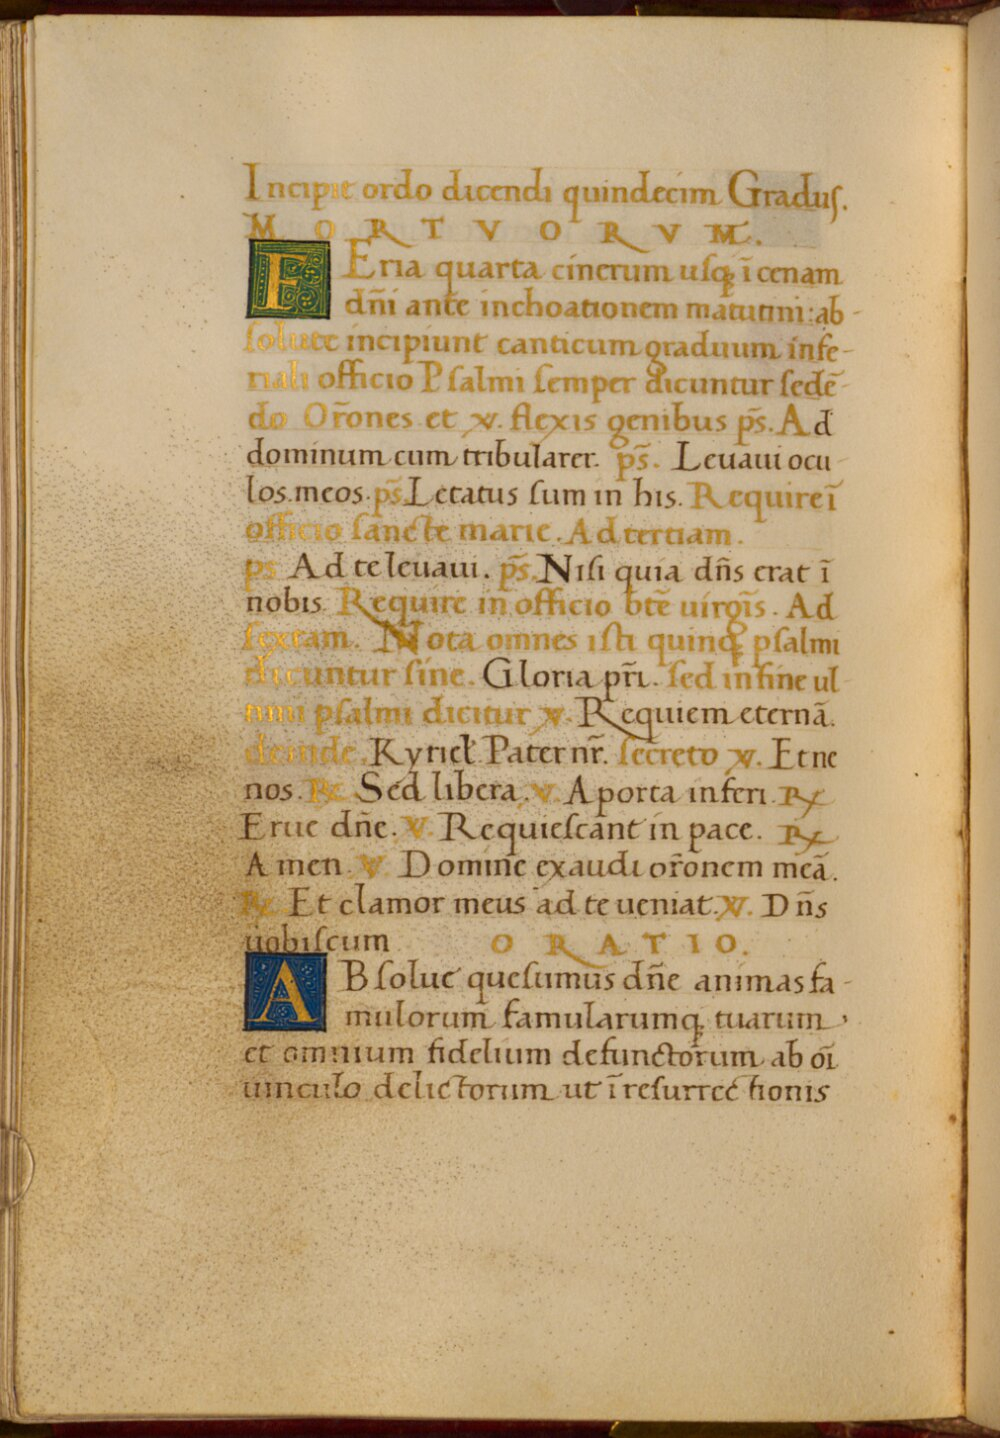 Incipit ordo dicendi quindecim Graduſ.
MORTVORVM.
FEria quarta cinerum uſq̨ ī cenam
dñi ante inchoationem matutini: ab-
ſolute incipiunt canticum graduum infe-
riali officio Pſalmi ſemper dicuntur ſedē-
do Or̄ones et ꝟ. flexis genibus ps̄. Ad
dominum cum tribularer. ps̄. Leuaui ocu
los. meos. ps̄. Letatus ſum in his. Require ī
officio ſancte marie. Ad tertiam.
ps Ad te leuaui. ps̄. Niſi quia dñs erat ī
nobis Require in officio btē uirgīs. Ad
ſextam. Nota omnes iſti quinq̨ pſalmi
dicuntur ſine. Gloria pr̄i. ſed in fine ul
timi pſalmi dicitur ꝟ. Requiem eternā.
deinde. Kyriel̄. Pater nr̄. ſecreto ꝟ. Et ne
nos. ℞ Sed libera. ꝟ. A porta inferi. ℞
Erue dñe. ꝟ. Requieſcant in pace. ℞
Amen. ꝟ Domine exaudi or̄onem meā.
℞. Et clamor meus ad te ueniat. ꝟ. Dñs
uobiſcum ORATIO.
ABſolue queſumus dñe animas fa-
mulorum famularumq̨ tuarum,
et omnium fidelium defunctorum ab oī
uinculo delictorum ut ī reſurrectionis